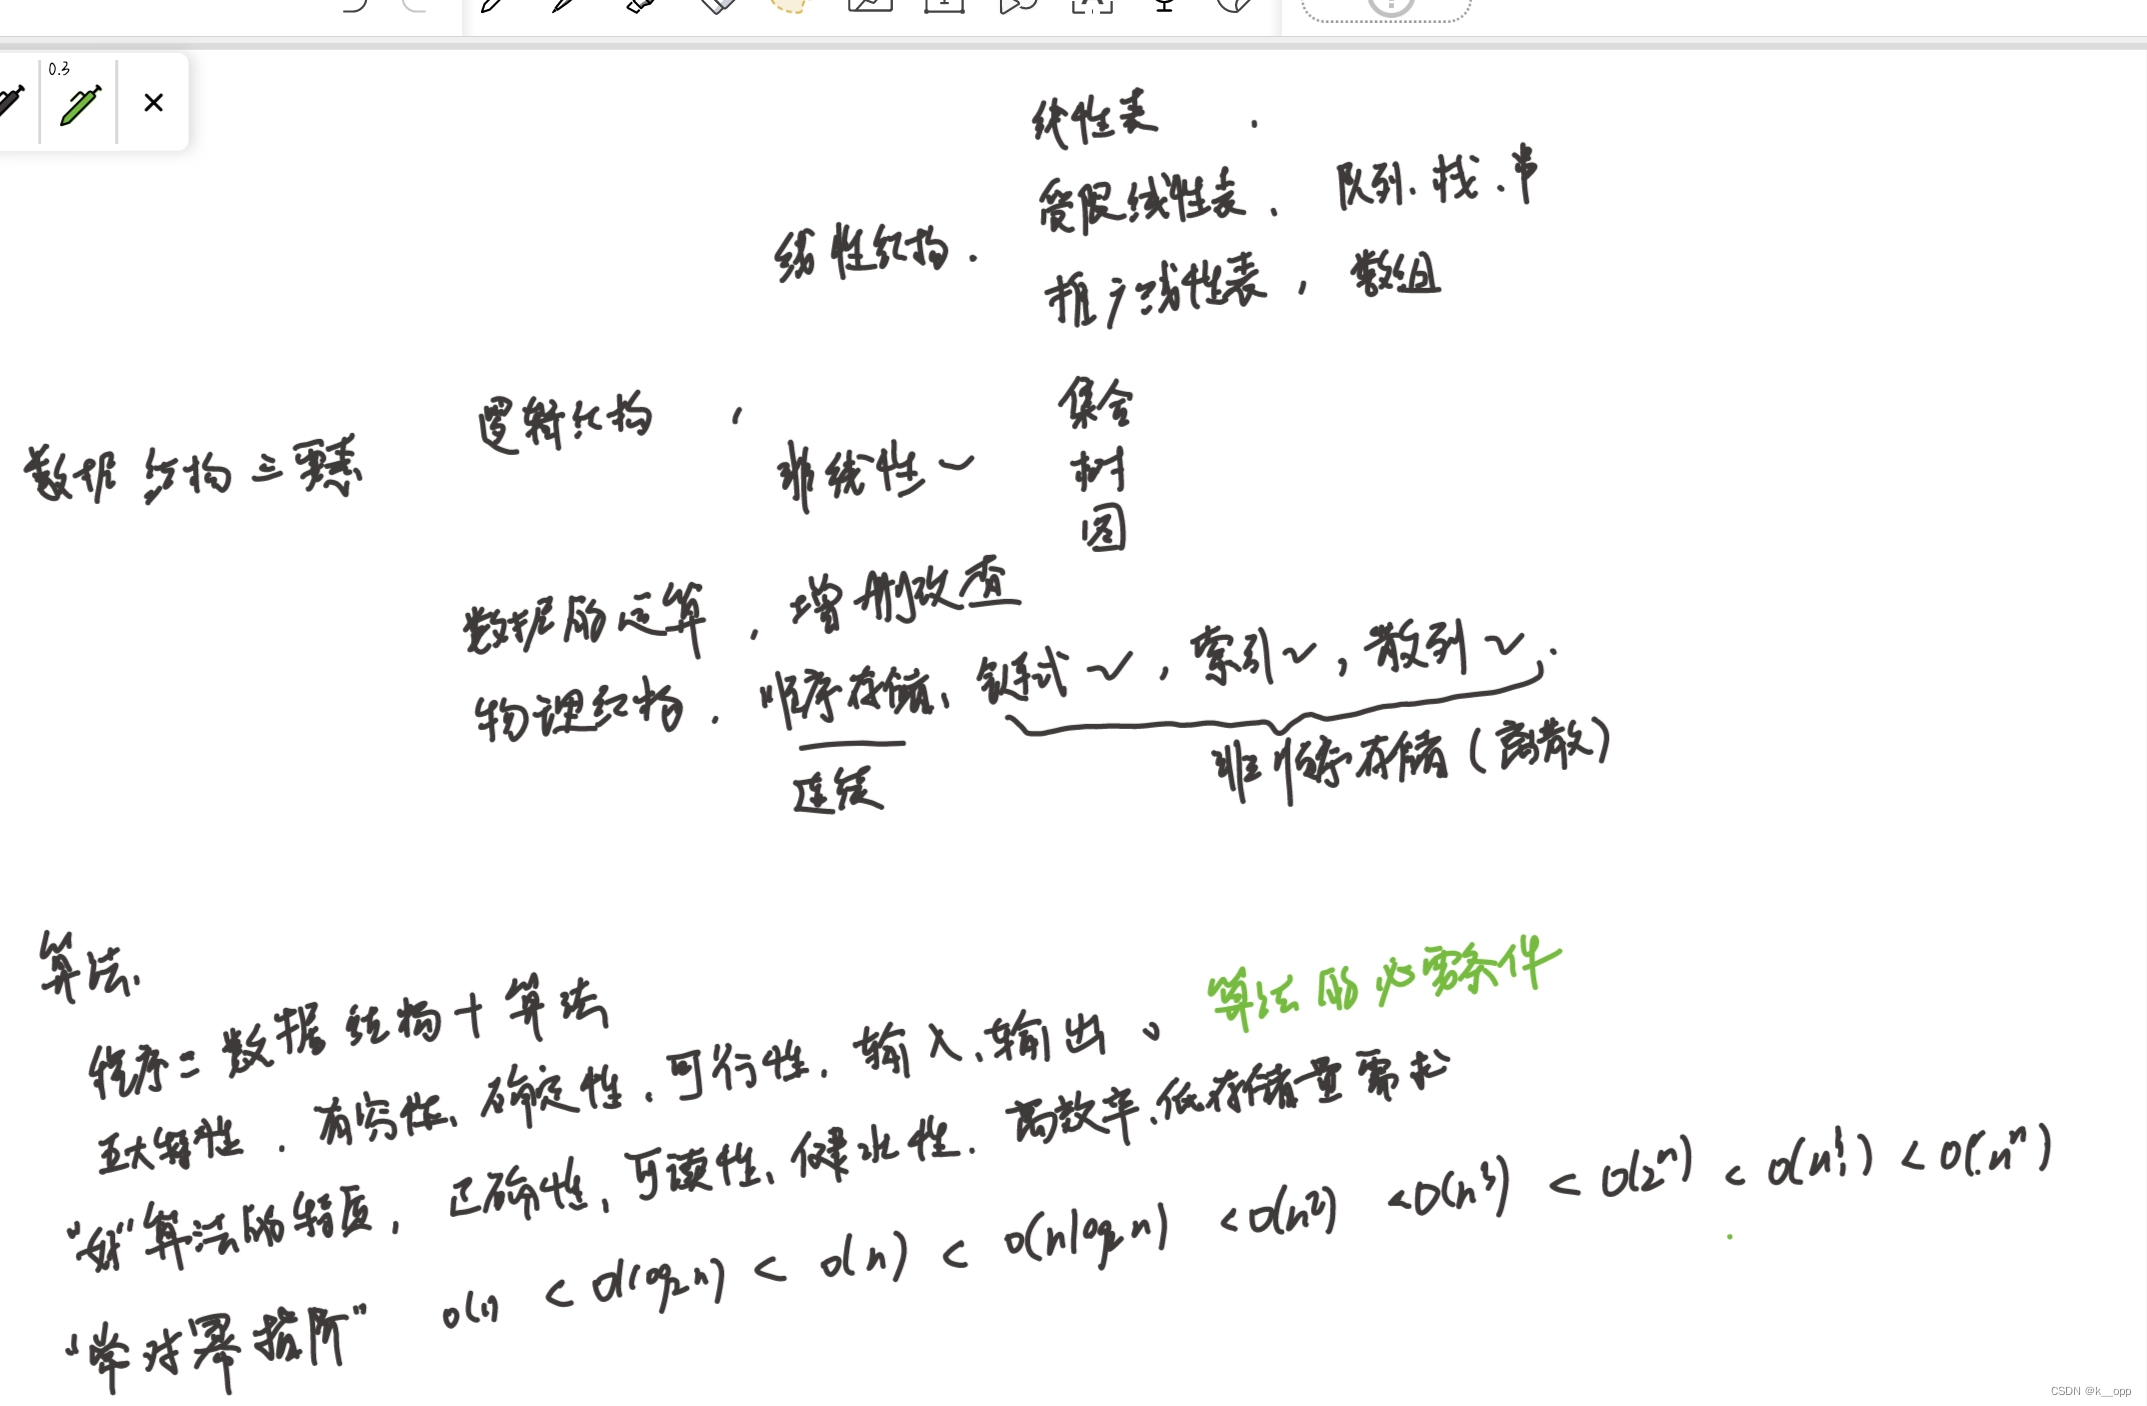 0.3
线性表 .
受限线性表. 队列. 栈. 串
线性结构.
推广线性表, 数组
逻辑结构,
集合
数据结构三要素
非线性~
树
图
数据的运算, 增删改查
物理结构. 顺序存储、链式~, 索引~, 散列~.
连续
非顺序存储(离散)
算法.
算法的必需条件
程序=数据结构+算法
五大特性. 有穷性、确定性、可行性. 输入、输出。
"好"算法的特质, 正确性, 可读性、健壮性. 高效率、低存储量需求
"常对幂指阶" O(1) < O(log₂n) < O(n) < O(nlog₂n) < O(n²) < O(n³) < O(2ⁿ) < O(n!) < O(nⁿ)
CSDN @k__opp